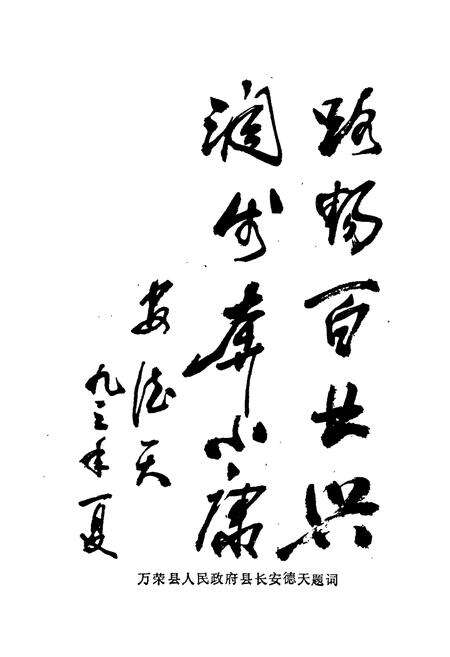 路畅百业兴
阔步奔小康
安德天
九三年夏
万荣县人民政府县长安德天题词